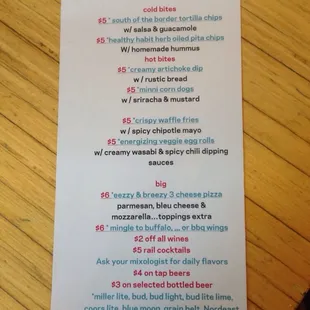 cold bites
$5 *south of the border tortilla chips
w/ salsa & guacamole
$5 *healthy habit herb oiled pita chips
W/ homemade hummus
hot bites
$5 *creamy artichoke dip
w/ rustic bread
$5 *minni corn dogs
w/ sriracha & mustard
$5 *crispy waffle fries
w/ spicy chipotle mayo
$5 *energizing veggie egg rolls
w/ creamy wasabi & spicy chili dipping
sauces
big
$6 *eezzy & breezy 3 cheese pizza
parmesan, bleu cheese &
mozzarella...toppings extra
$6 *mingle to buffalo, ... or bbq wings
$2 off all wines
$5 rail cocktails
Ask your mixologist for daily flavors
$4 on tap beers
$3 on selected bottled beer
*miller lite, bud, bud light, bud lite lime,
coors lite, blue moon, grain belt, Nordeast